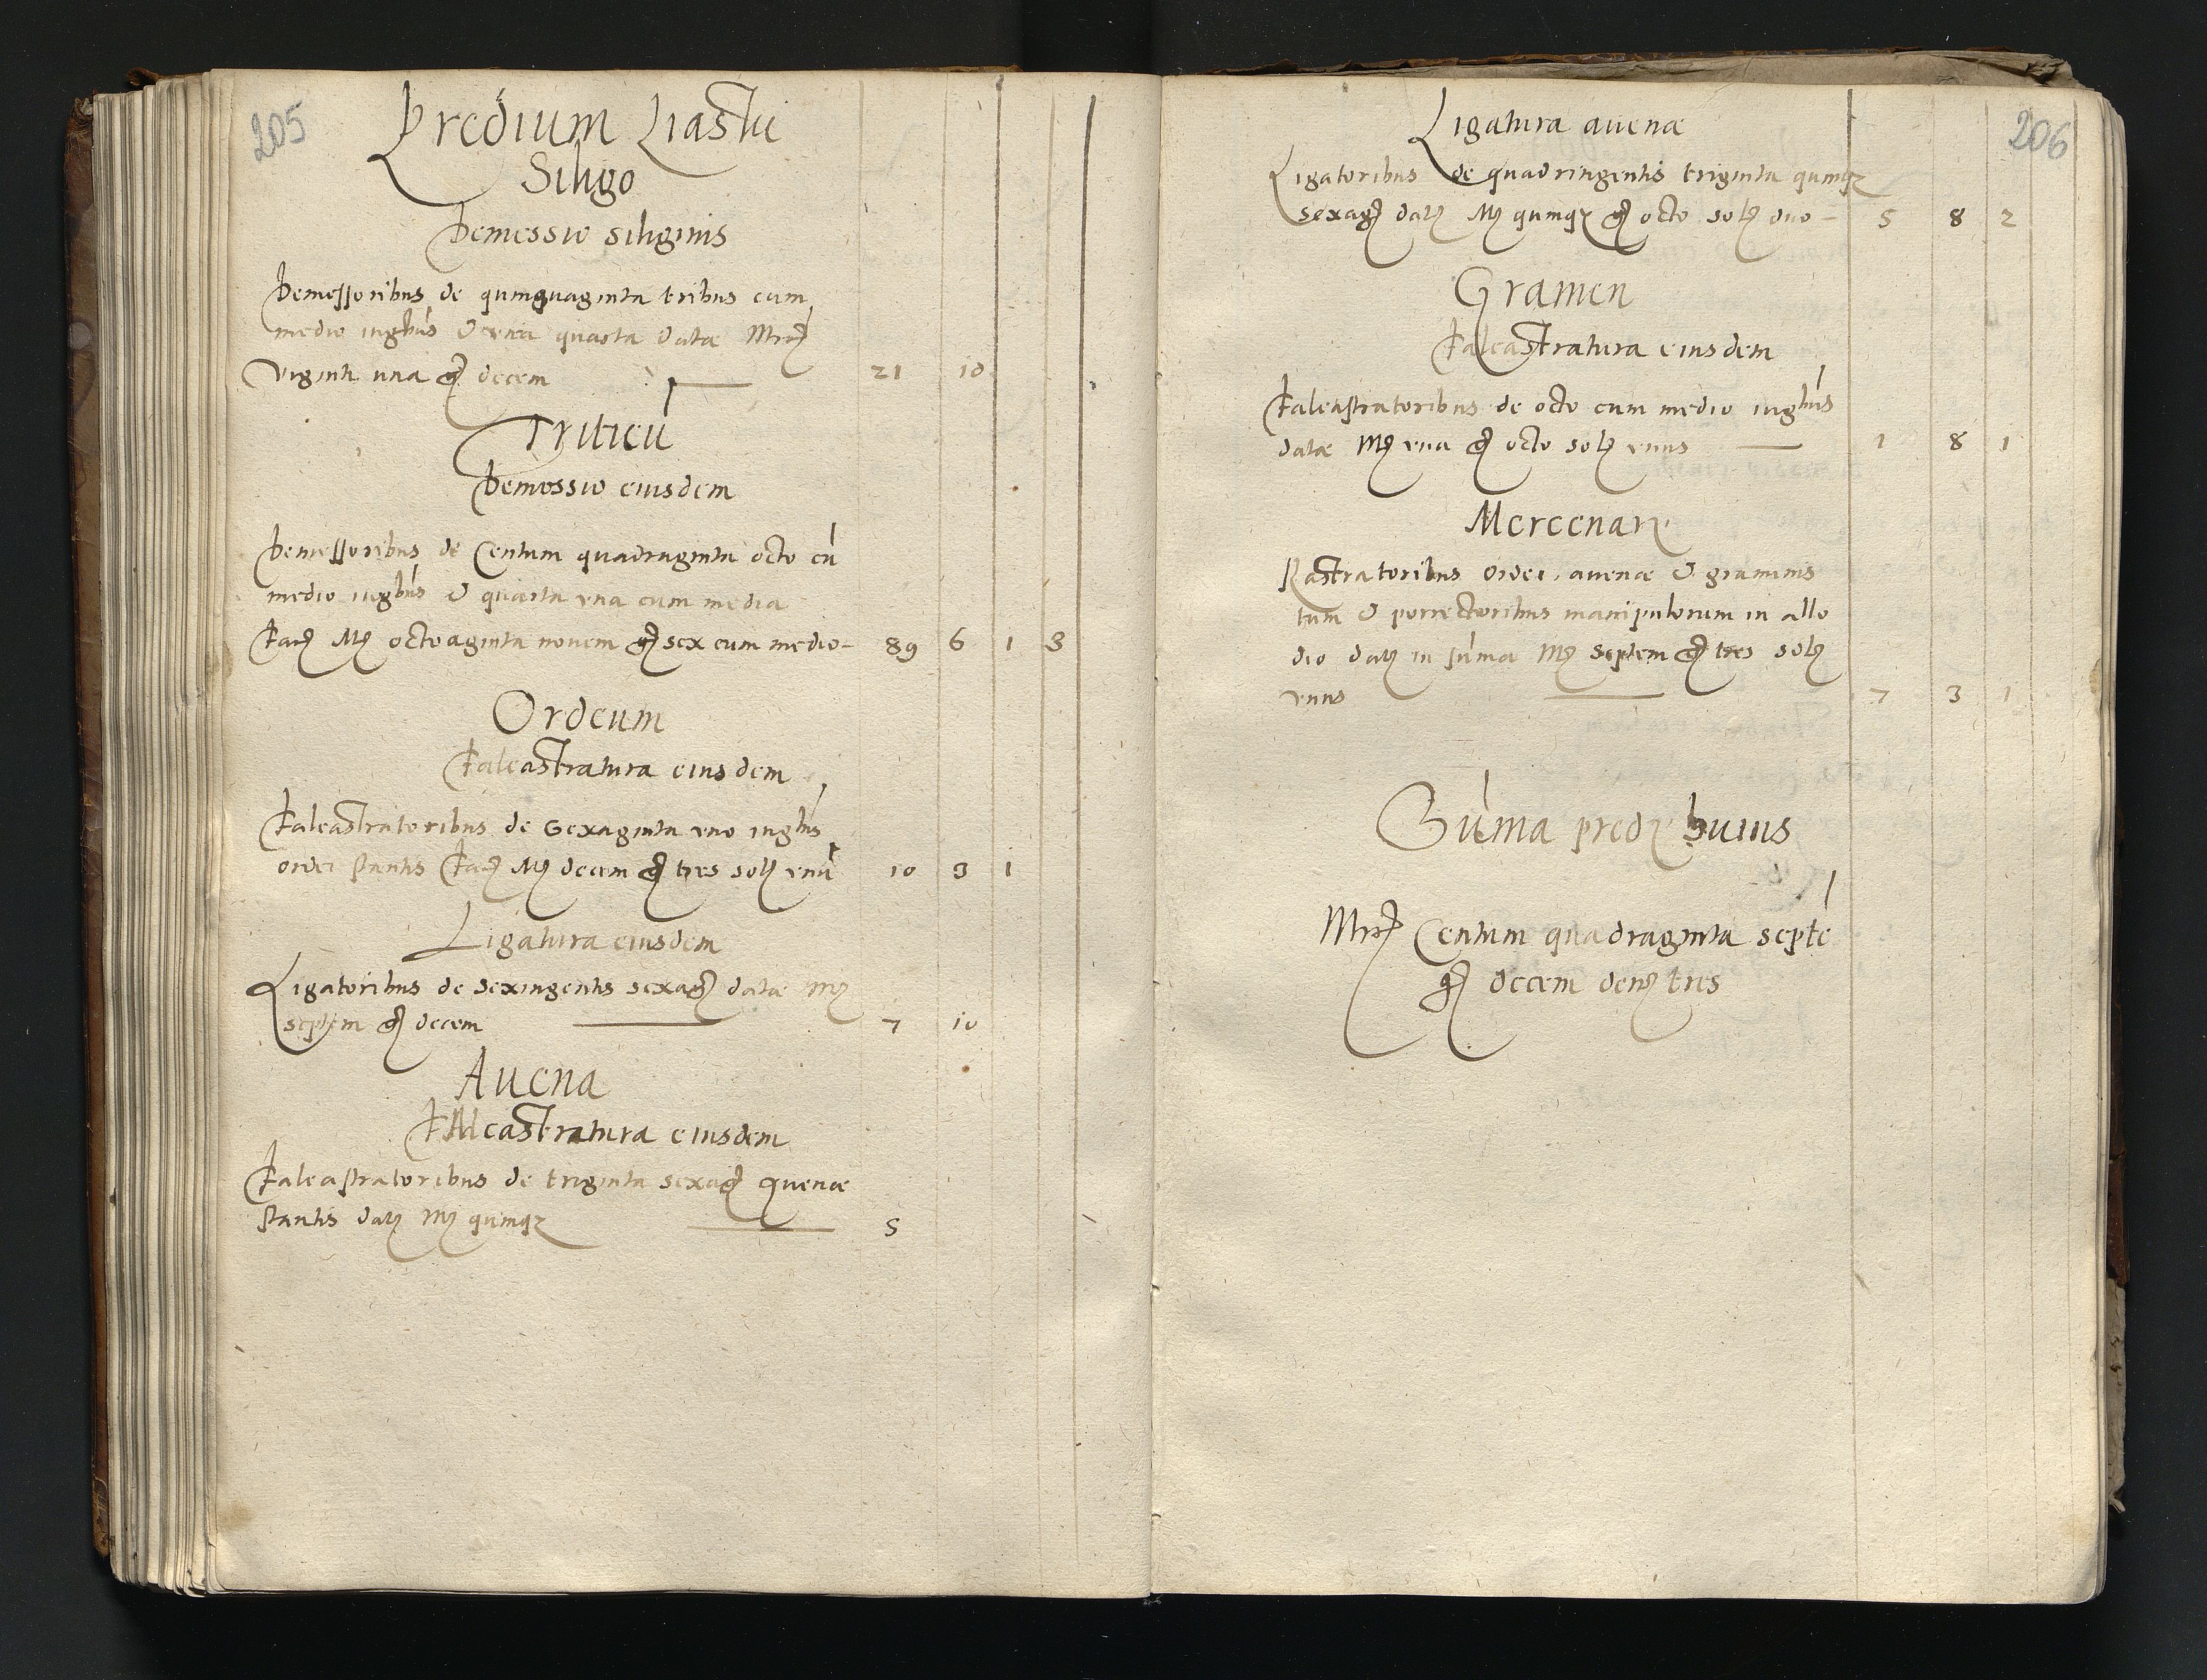 205
Predium Liasky
Siligo
Demessio siliginis
Demessoribus de quinquaginta tribus cum
medio iugeribus & una quarta datae Mrce
viginti una gr decem 21 10
Triticū
Demessio eiusdem
Demessoribus de Centum quadraginta octo cū
medio iugeribus & quarta una cum media
fac Mr octoaginta novem gr sex cum medio 89 6 1 3
Ordeum
Falcastratura eiusdem
Falcastratoribus de sexaginta uno iugeribus
ordei stantis fac Mr decem gr tres sol unū 10 3 1
Ligatura eiusdem
Ligatoribus de sexingentis sexag datae Mr
septem gr decem 7 10
Auena
Falcastratura eiusdem
Falcastratoribus de triginta sexag auenae
stantis dat Mr quinqz 5
206
Ligatura auenae
Ligatoribus de quadringentis triginta quinqz
sexag dat Mr quinqz gr octo sol duo 5 8 2
Gramen
Falcastratura eiusdem
Falcastratoribus de octo cum medio iugeribus
datae Mr una gr octo sol unus 1 8 1
Mercenarz
Rastratoribus ordei, auenae & graminis
tum & porrectoribus manipulorum in allo
dio dat in sūma Mr septem gr tres sol
unus 7 3 1
Sūma predz huius
Mrce Centum quadraginta septē
gr decem den tres